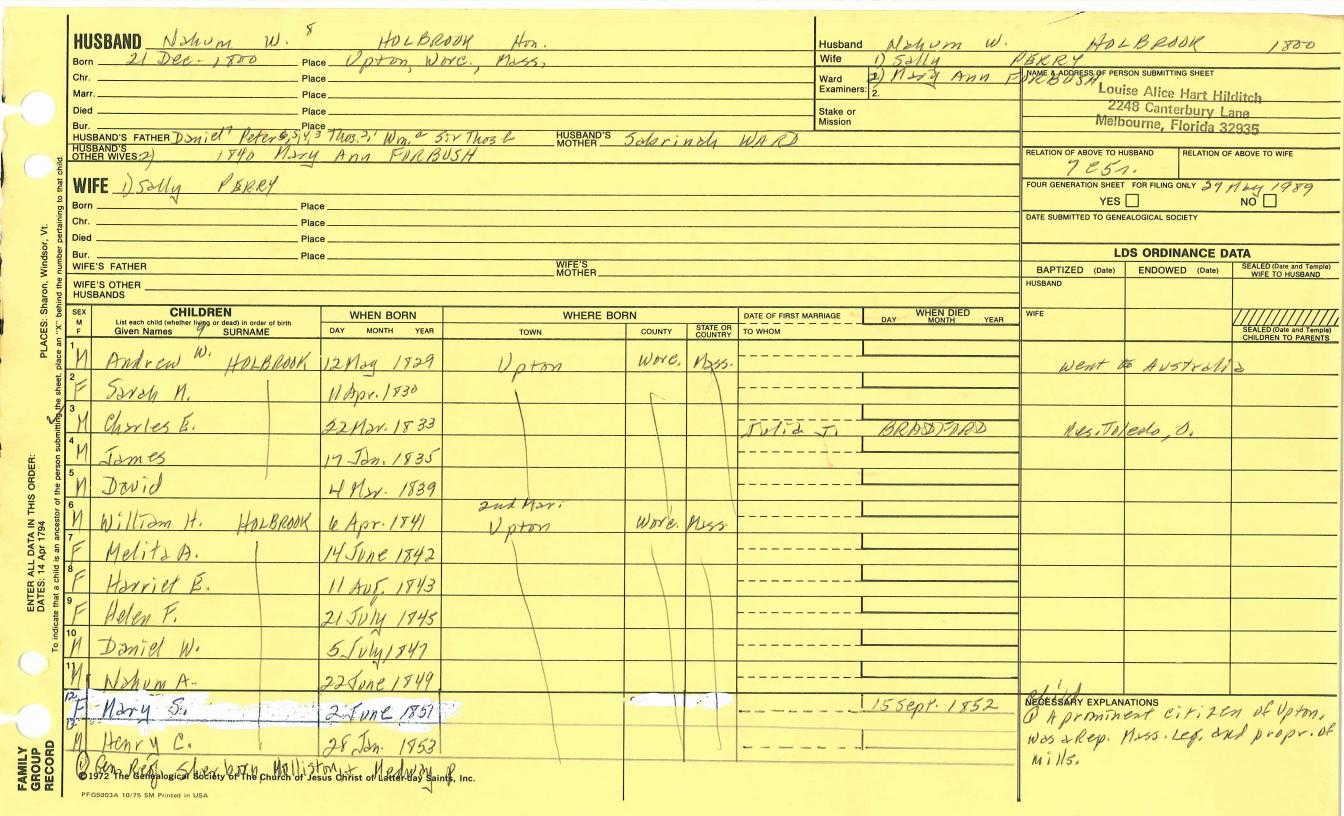 HUSBAND Nahum W. 8 HOLBROOK Hon.
Born 21 Dec. 1800 Place Upton, Worc., Mass.
Chr. Place
Marr. Place
Died Place
Bur. Place
HUSBAND'S FATHER Daniel 7 Peter 6,5,4,3 Thos. 2,1 Wm. Sir Thos HUSBAND'S MOTHER Sabrinah WARD
HUSBAND'S OTHER WIVES 2) 1840 Mary Ann FORBUSH
WIFE 1) Sally PERRY
Born Place
Chr. Place
Died Place
Bur. Place
WIFE'S FATHER WIFE'S MOTHER
WIFE'S OTHER HUSBANDS
Husband Nahum W. HOLBROOK 1800
Wife 1) Sally PERRY
2) Mary Ann FORBUSH
Ward
Examiners: 2.
Stake or
Mission
NAME & ADDRESS OF PERSON SUBMITTING SHEET
Louise Alice Hart Hilditch
2248 Canterbury Lane
Melbourne, Florida 32935
RELATION OF ABOVE TO HUSBAND RELATION OF ABOVE TO WIFE
7C5r.
FOUR GENERATION SHEET FOR FILING ONLY 29 May 1989
YES NO
DATE SUBMITTED TO GENEALOGICAL SOCIETY
LDS ORDINANCE DATA
BAPTIZED (Date) ENDOWED (Date) SEALED (Date and Temple) WIFE TO HUSBAND
HUSBAND
WIFE
SEALED (Date and Temple) CHILDREN TO PARENTS
SEX M F
CHILDREN
List each child (whether living or dead) in order of birth
Given Names 9 SURNAME
WHEN BORN
DAY MONTH YEAR
WHERE BORN
TOWN COUNTY STATE OR COUNTRY
DATE OF FIRST MARRIAGE
TO WHOM
WHEN DIED
DAY MONTH YEAR
1 M Andrew W. HOLBROOK 12 May 1829 Upton Worc. Mass. Went to Australia
2 F Sarah M. 11 Apr. 1830
3 M Charles E. 22 Mar. 1833 Julia J. BRADFORD Res. Toledo, O.
4 M James 17 Jan. 1835
5 M David 4 Mar. 1839
2nd Mar:
6 M William H. HOLBROOK 6 Apr. 1841 Upton Worc. Mass
7 F Melita A. 14 June 1842
8 F Harriet E. 11 Aug. 1843
9 F Helen F. 21 July 1845
10 M Daniel W. 5 July 1847
11 M Nahum A. 22 June 1849
12 F Mary S. 2 June 1851 15 Sept. 1852
13 M Henry C. 28 Jan. 1853
NECESSARY EXPLANATIONS
① A prominent citizen of Upton,
was a Rep. Mass. Leg. and propr. of
mills.
① Gen. Reg. Sherborn Holliston, + Medway P
©1972 The Genealogical Society of The Church of Jesus Christ of Latter-day Saints, Inc.
PFGS003A 10/75 5M Printed in USA
FAMILY GROUP RECORD
ENTER ALL DATA IN THIS ORDER:
DATES: 14 Apr 1794
PLACES: Sharon, Windsor, Vt.
To indicate that a child is an ancestor of the person submitting the sheet, place an "X" behind the number pertaining to that child.